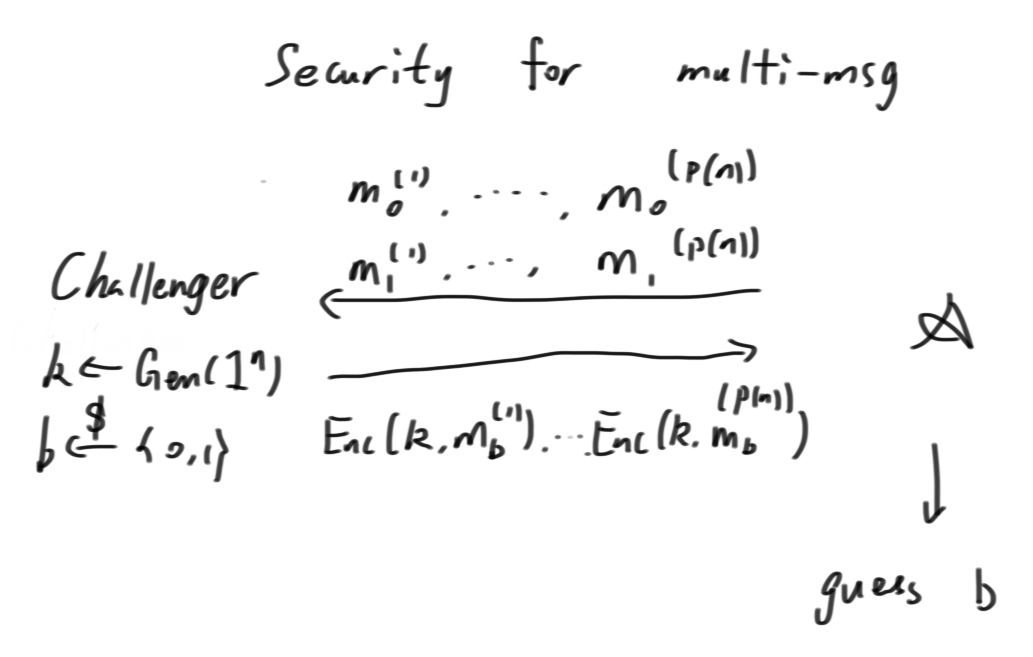 Security for multi-msg
m₀⁽¹⁾, ⋯⋯, m₀⁽ᵖ⁽ⁿ⁾⁾
m₁⁽¹⁾, ⋯, m₁⁽ᵖ⁽ⁿ⁾⁾
Challenger
A
k ← Gen(1ⁿ)
b ←$ {0,1}
Enc(k, m_b⁽¹⁾). ⋯ Enc(k, m_b⁽ᵖ⁽ⁿ⁾⁾)
guess b